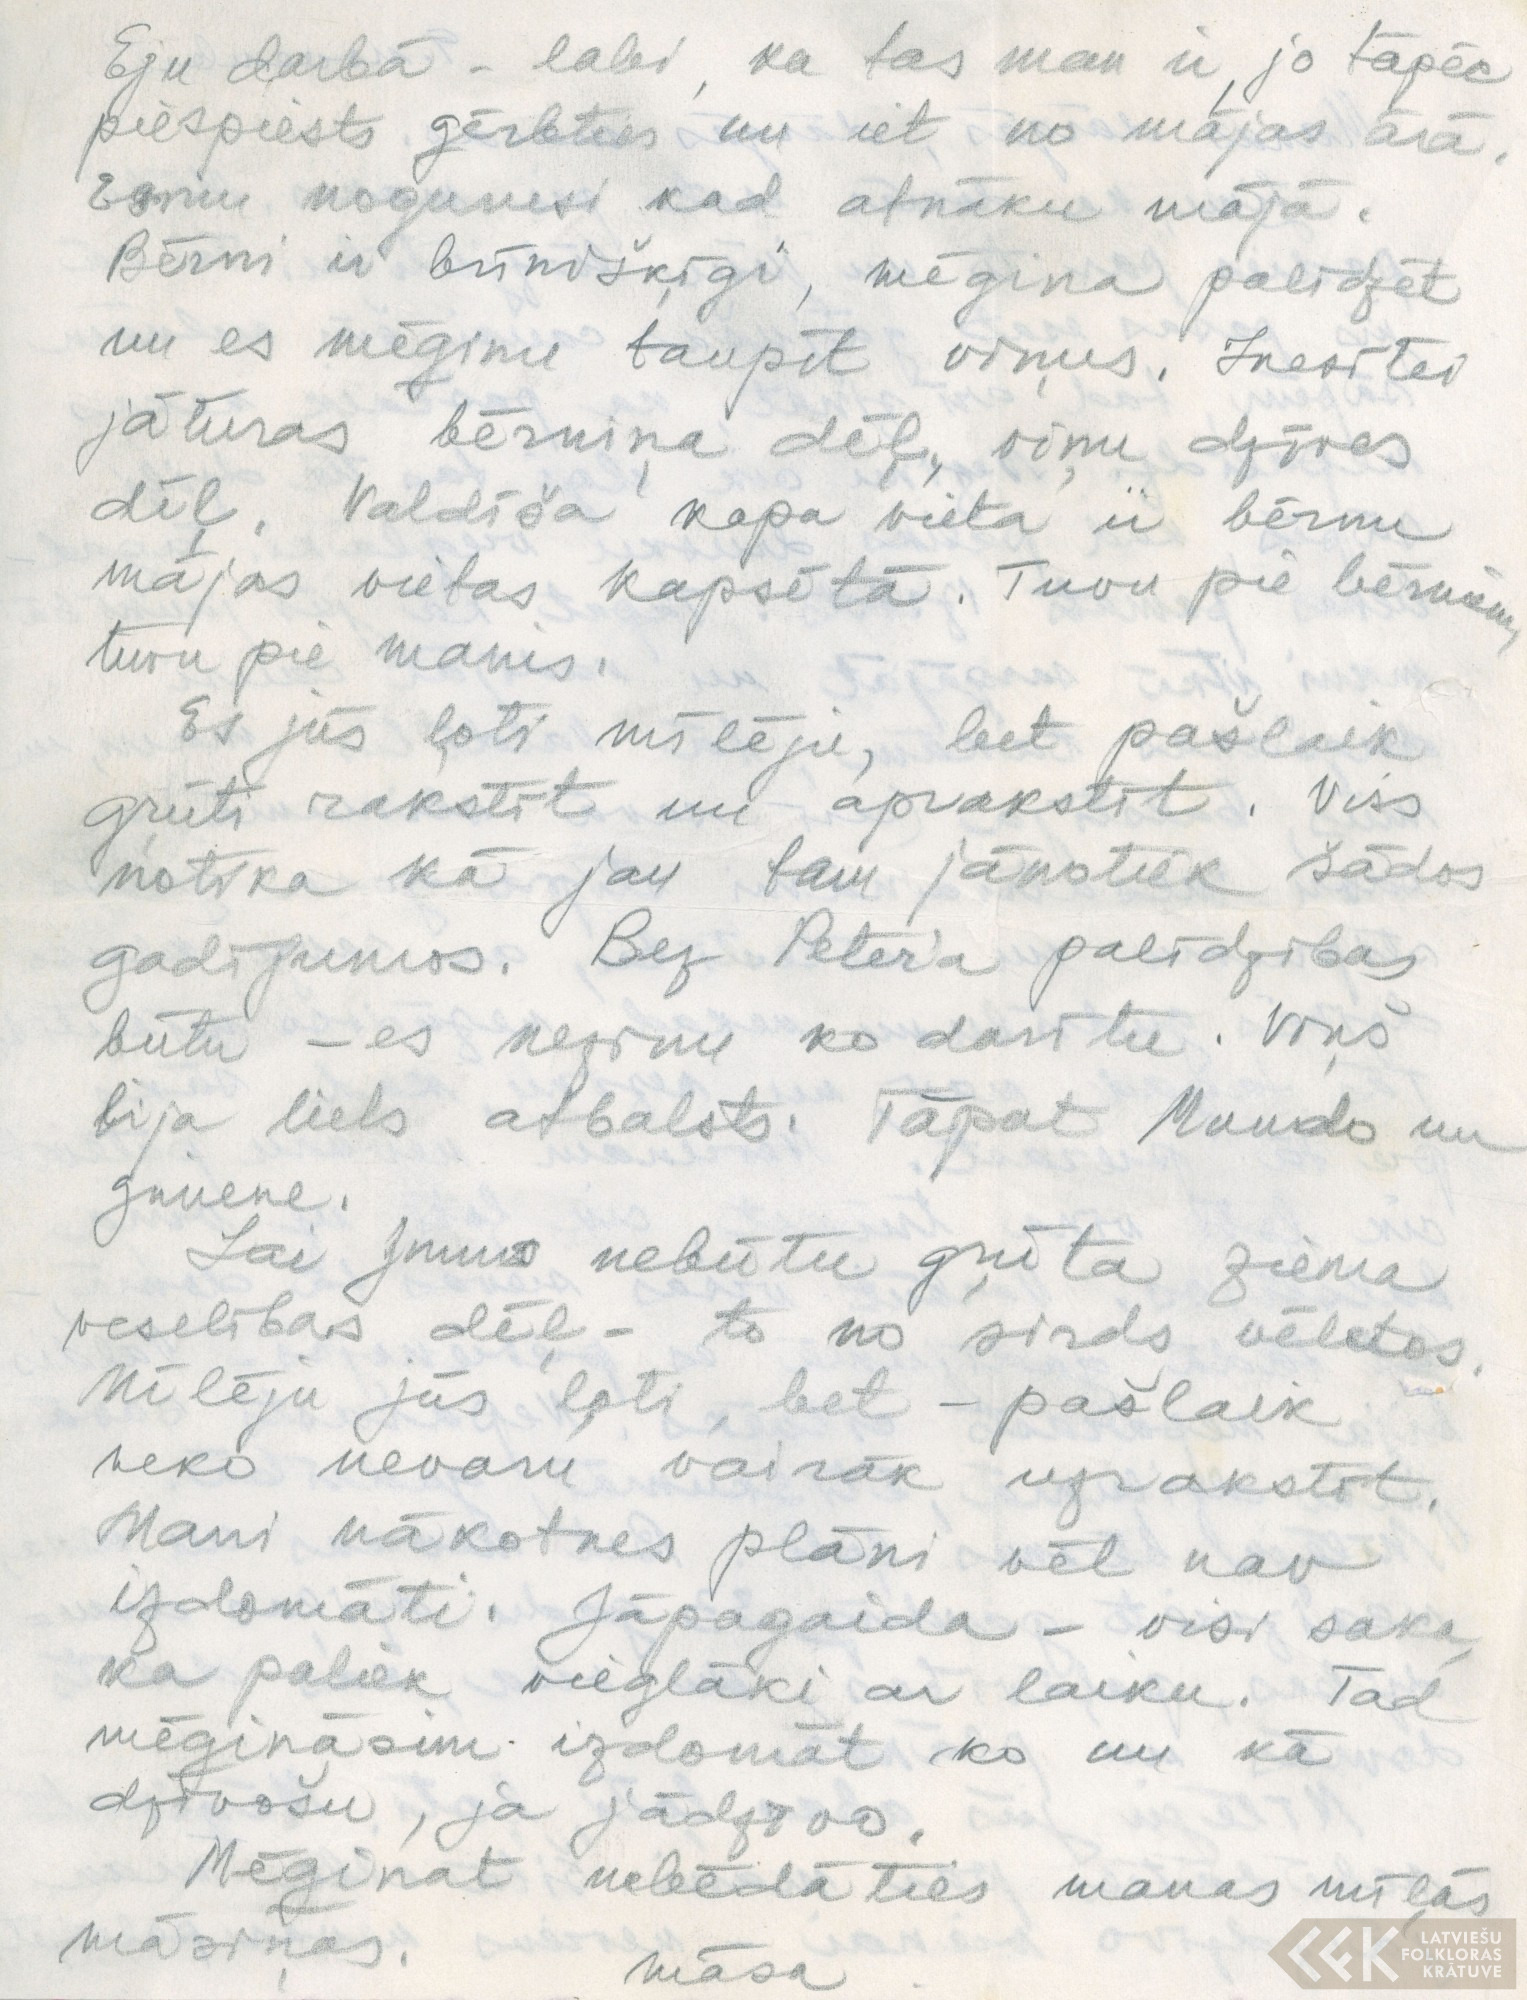 Eju darbā - labi, ka tas man ir, jo tāpēc
piespiests ģērbties un iet no mājas ārā.
Esmu nogurusi kad atnāku mājā.
Bērni ir brīnišķīgi, mēģina palīdzēt
un es mēģinu taupīt viņus. Inesītei
jāturas bērniņa dēļ, viņu dzīves
dēļ. Valdiša kapa vieta ir bērnu
mājas vietas kapsētā. Tuvu pie bērniem,
tuvu pie manis.
Es jūs ļoti mīlēju, bet pašlaik
grūti rakstīt un aprakstīt. Viss
notika kā jau tam jānotiek šādos
gadījumos. Bez Pētera palīdzības
būtu - es nezinu ko darītu. Viņš
bija liels atbalsts. Tāpat Mundo un
ģimene.
Lai Jums nebūtu grūta ziema
veselības dēļ - to no sirds vēlētos.
Mīlēju jūs ļoti, bet - pašlaik
neko nevaru vairāk uzrakstīt.
Mani nākotnes plāni vēl nav
izdomāti. Jāpagaida - visi saka,
ka paliek vieglāki ar laiku. Tad
mēģināsim izdomāt ko un kā
dzīvošu, ja jādzīvo.
Mēģinat nebēdāties manas mīļās
māsiņas.
māsa
LATVIEŠU
FOLKLORAS
KRĀTUVE